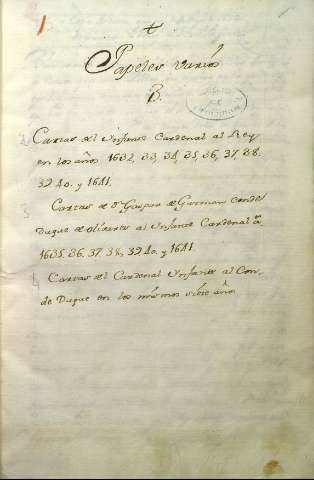 1
+
Papeles varios
B.
2 Cartas del Ynfante Cardenal al Rey
en los años 1632, 33, 34, 35, 36, 37, 38.
39 40. y 1641.
3 Cartas de Dn Gaspar de Guzman conde
Duque de olivares al Ynfante Cardenal
1635. 36. 37. 38, 39 40. y 1641.
4 Cartas del Cardenal Ynfante al Con-
de Duque en los mismos siete años